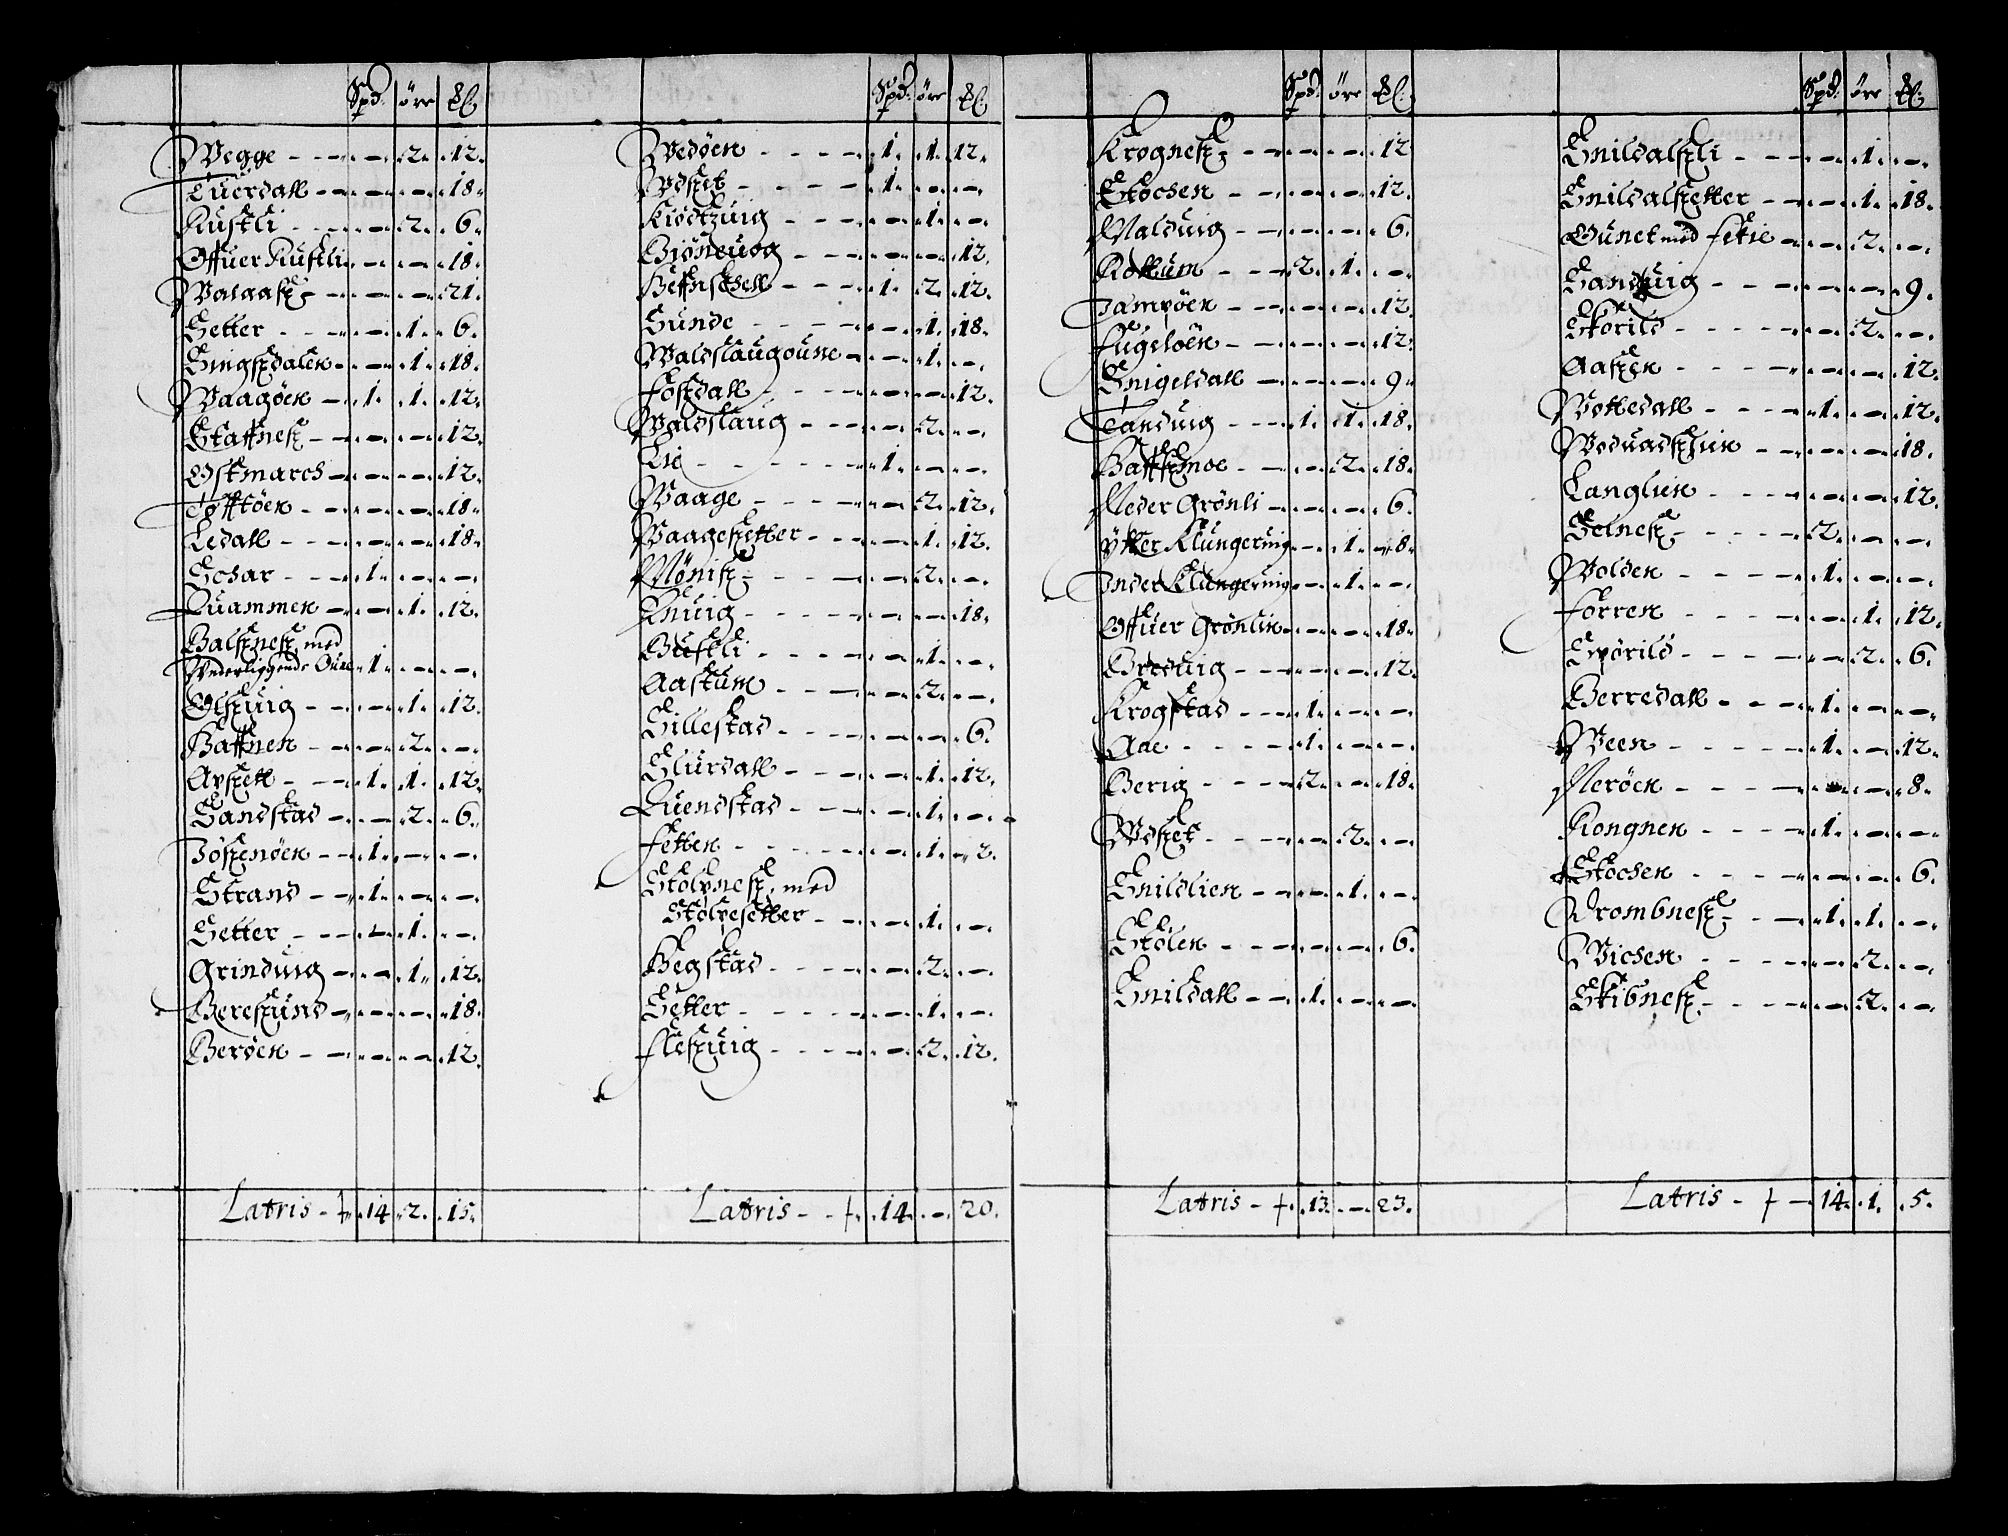 Spd. örr Sl.
Wegge - - - 2. 12.
Tuerdall - - - 18.
Rustli - - 2. 6.
Offuer Rustli - - 18.
Walaas - - - 21.
Setter - - 1. 6.
Singsdalen - 1. 18.
Waagöen - 1. 1. 12.
Staffnes - - - 12.
Ostmarch - - - 12.
Töfftöen - - - 18.
Ledall - - - 18.
Schar - 1. - -
Quammen - - 1. 12.
Balsnes, med
Vnderliggende Öune 1. - -
Olsuig - - 1. 12.
Haffnen - - 2. -
Apsett - 1. 1. 12.
Sandstad - - 2. 6.
Jösenöen - 1. - -
Strand - 1. - -
Setter - - 1. -
Grinduig - - 1. 12.
Beresund - - - 18.
Beröen - - - 12.
Latris - 14. 2. 15.
Spd. örr Sl.
Wedöen - 1. 1. 12.
Wdset - 1. - -
Kiödtzuig - - 1. -
Biöneuog - - - 12.
Heffnschell - 1. 2. 12.
Sunde - - 1. 18.
Waldslaugoune - 1. -
Fossdall - - - 12.
Waldslaug - - 2. -
Lie - 1. - -
Waage - - 2. 12.
Waagesetter - - 1. 12.
Mönis - - 2. -
Knuig - - - 18.
Bustli - - 1. -
Aastum - - 2. -
Hillestad - - - 6.
Slurdall - - 1. 12.
Quendstad - - 1. -
Fetten - - 1. 2.
Stolpnes, med
Stolpesetter - - 1. -
Hegstad - - 2. -
Setter - - 1. -
Flesuig - - 2. 12.
Latris - 14. - 20.
Spd. örr Sl.
Krognes - - - 12
Stocsen - - - 12.
Malduig - - - 6.
Rottum - 2. 1. -
Jampöen - - - 12.
Fugelöen - - - 12.
Snigeldall - - - 9.
Tanduig - 1. 1. 18.
Haffsmoe - - 2. 18.
Neder Grönli - - - 6.
Ytter Klungeruig - 1. 18.
Inder Klungeruig - 1. -
Offuer Grönlien - - 18.
Breduig - - - 12.
Krogstad - 1. - -
Aae - 1. - -
Berig - 2. - 18.
Wdset - - 2. -
Snildlien - - 1. -
Stölen - - - 6.
Snildall - 1. - -
Latris - 13. - 23.
Spd. örr Sl.
Snildalsli - - 1. -
Snildalsetter - - 1. 18.
Ounet med Fetie - - 2. -
Sanduig - - - 9.
Skorild - - 2. -
Aasen - - - 12.
Wottedall - 1. - 12.
Woduadslien - - - 18.
Langlien - - - 12.
Selnes - 2. - -
Wolden - 1. - -
Forren - - 1. 12.
Spörild - - 2. 6.
Berredall - 1. - -
Ween - 1. - 12.
Neröen - - - 8.
Kongnen - 1. - -
Stocsen - - - 6.
Drombnes - 1. 1. -
Wichen - - 2. -
Skibnes - - 2. -
Latris - 14. 1. 5.